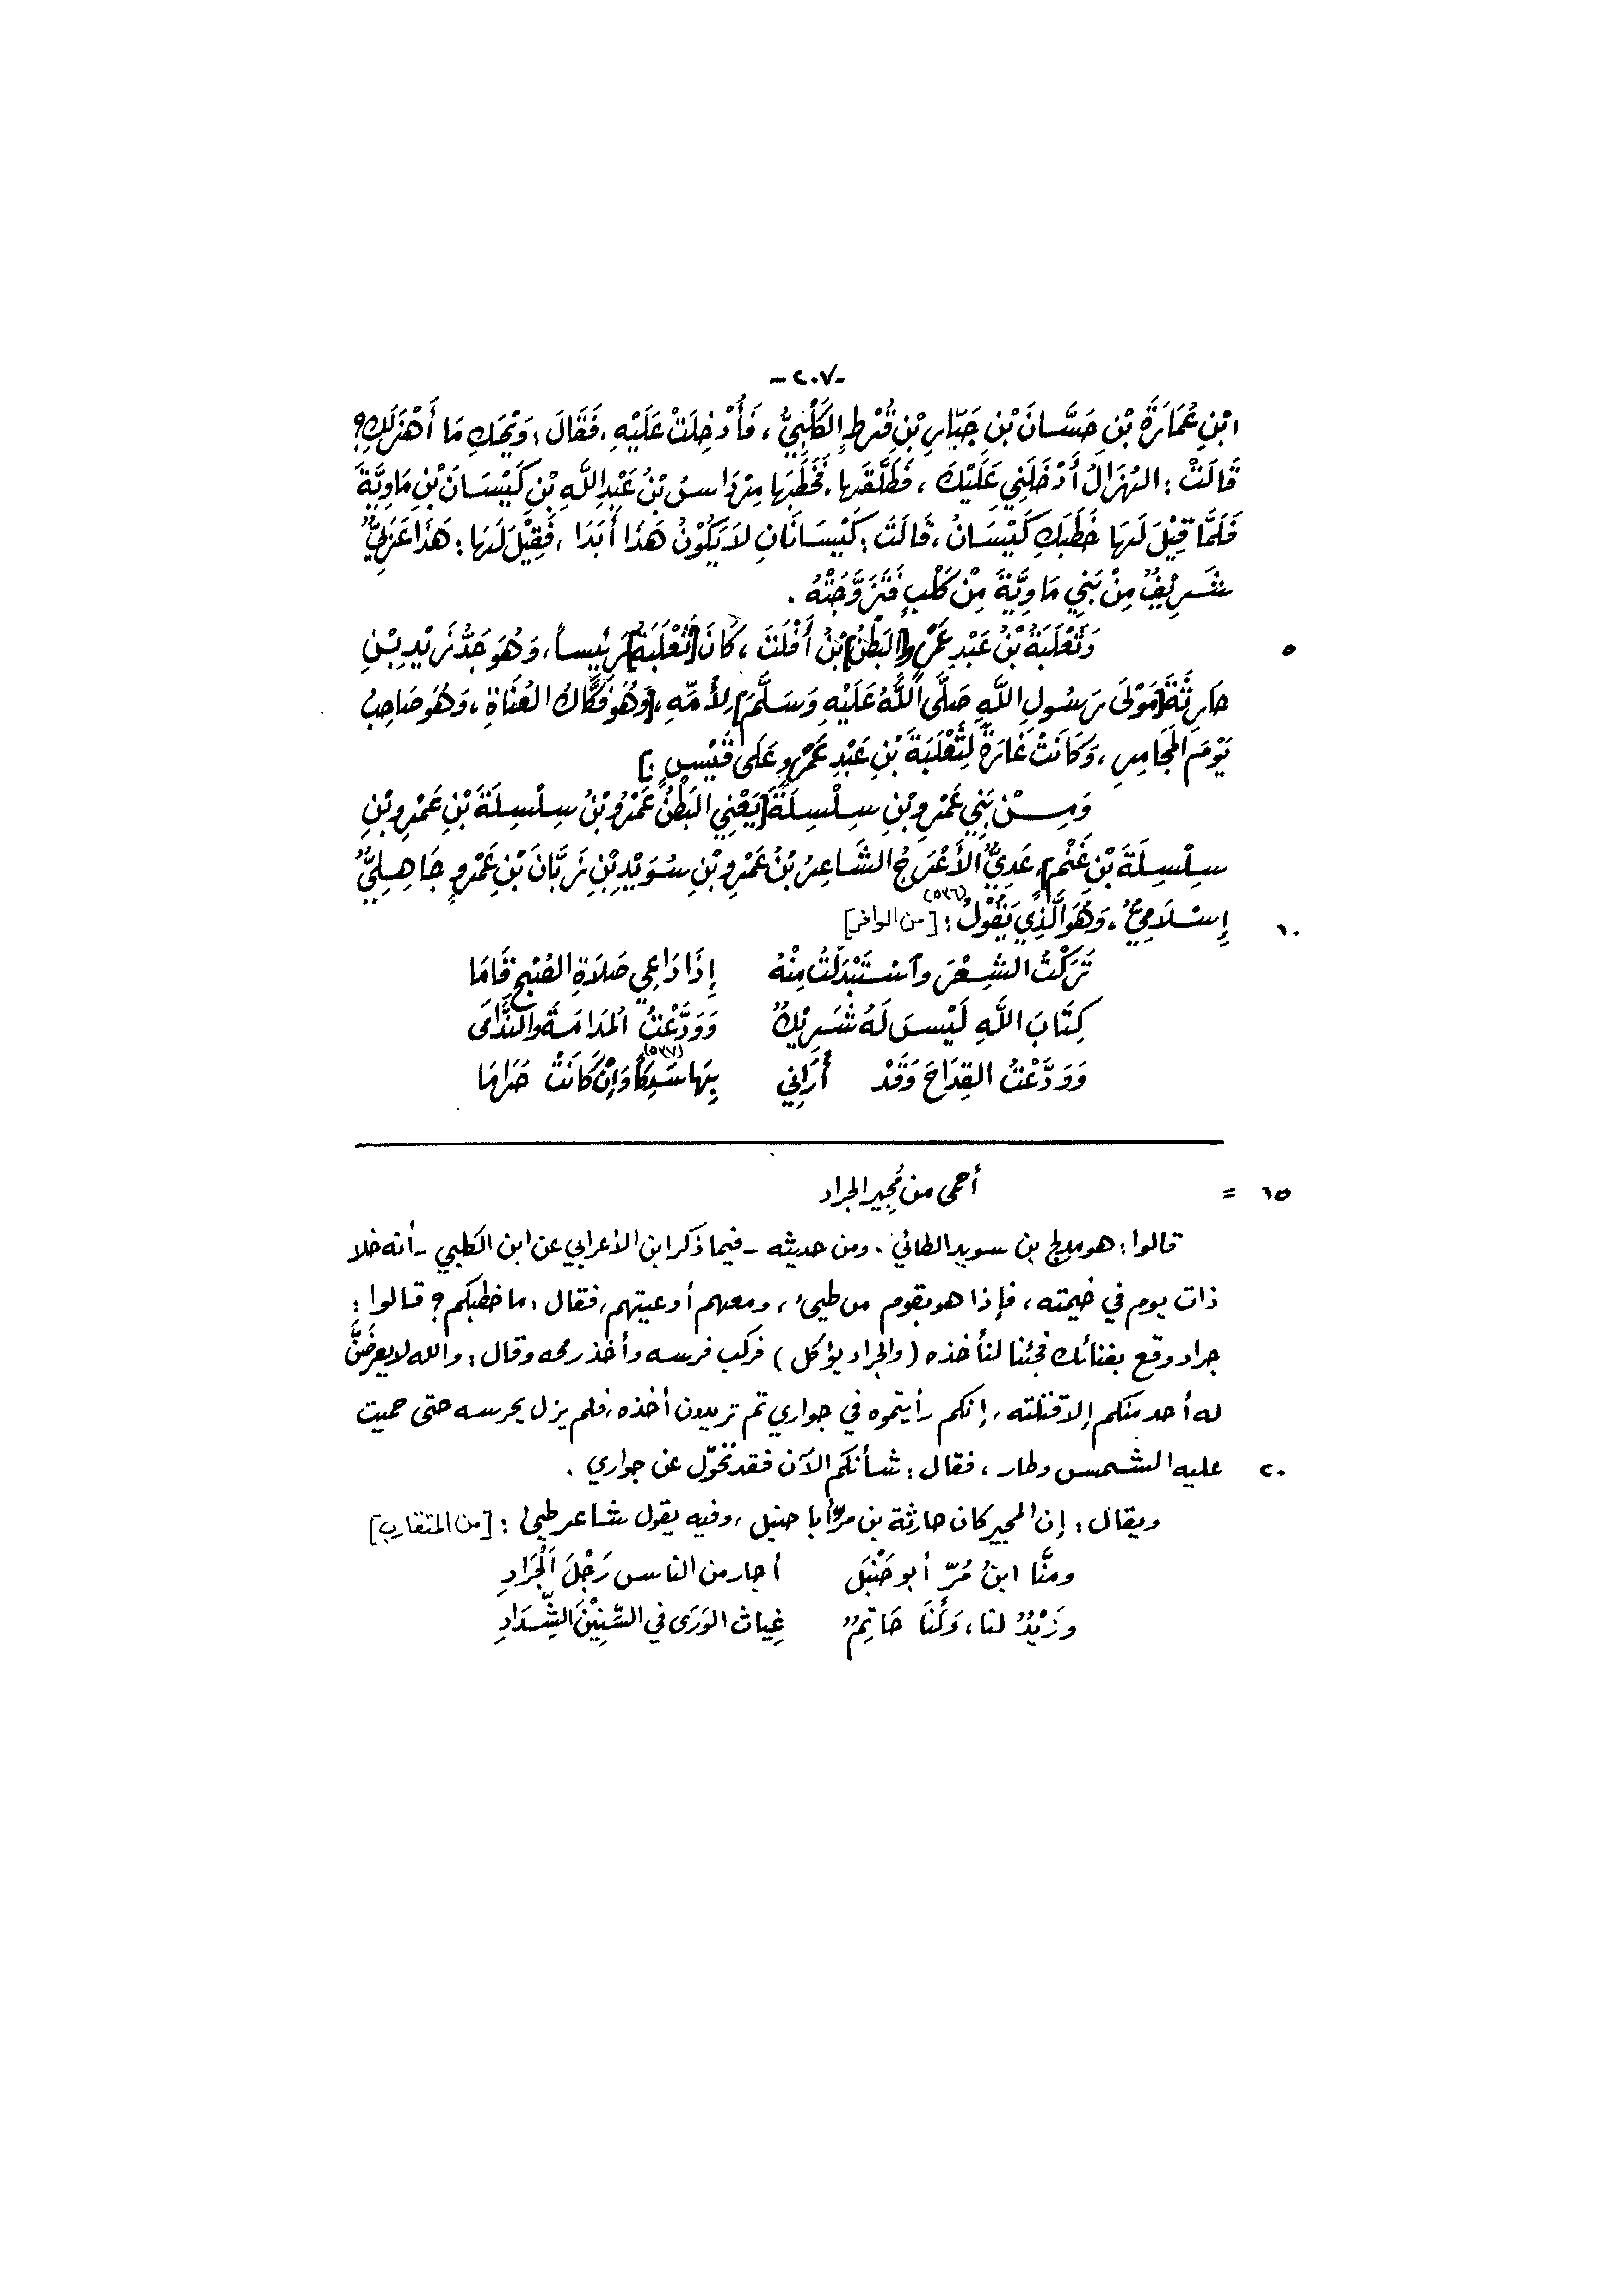 -٢٠٧-
ابْنِ عُمَارَةَ بْنِ حَسَّانَ بْنِ جَبَّارِ بْنِ قُرْطٍ الكَلْبِيُّ، فَأُدْخِلَتْ عَلَيْهِ، فَقَالَ: وَيْحَكِ مَا أَهْزَلَكِ؟
قَالَتْ: الهُزَالُ أَدْخَلَنِي عَلَيْكَ، فَطَلَّقَها، فَخَطَبَها مِرْدَاسُ بْنُ عَبْدِ اللَّهِ بْنِ كَيْسَانَ بْنِ مَاوِيَّةَ
فَلَمَّا قِيْلَ لَهَا خَطَبَكِ كَيْسَانُ، قَالَتْ: كَيْسَانَانِ لاَيَكُوْنُ هَذَا أَبَدَا، فَقِيْلَ لَهَا: هَذَا عَرَبِيٌّ
شَرِيْفٌ مِنْ بَنِي مَاوِيَّةَ مِنْ كَلْبٍ فَتَزَوَّجَتْهُ.
٥ وَثَعْلَبَةُ بْنُ عَبْدِ عَمْرٍو [البَطْنُ] بْنُ أَفْلَتَ، كَانَ [ثَعْلَبَةُ] رَئِيساً، وَهُوَ جَدُّ زَيْدِ بْنِ
حَارِثَةَ [مَوْلَى رَسُولِ اللَّهِ صَلَّى اللَّهُ عَلَيْهِ وَسَلَّمَ] لِأُمِّهِ، [وَهُوَ فَكَّاكُ العُنَاةِ، وَهُوَ صَاحِبُ
يَوْمَ المَجَامِرِ، وَكَانَتْ غَارَةً لِثَعْلَبَةَ بْنِ عَبْدِ عَمْرٍو عَلَى قَيْسٍ.]
وَمِنْ بَنِي عَمْرِو بْنِ سِلْسِلَةَ [يَعْنِي البَطْنُ عَمْرُو بْنُ سِلْسِلَةَ بْنِ عَمْرِو بْنِ
سِلْسِلَةَ بْنِ غَنْمٍ]، عَدِيٌّ الأَعْرَجُ الشَّاعِرُ بْنُ عَمْرِو بْنِ سُوَيْدِ بْنِ زَبَّانَ بْنِ عَمْرٍو جَاهِلِيٌّ
١٠ إِسْلَامِيٌّ، وَهُوَ الَّذِي يَقُوْلُ (٥٣٦): [من الوافر]
تَرَكْتُ الشِّعْرَ وَاسْتَبْدَلْتُ مِنْهُ إِذَا دَاعِي صَلاَةِ الصُّبْحِ قَامَا
كِتَابَ اللَّهِ لَيْسَ لَهُ شَرِيْكٌ وَوَدَّعْتُ المُدَامَةَ والنَّدَامَى
وَوَدَّعْتُ القِدَاحَ وَقَدْ أُرَانِي بِهَا سَدِكاً (٥٣٧) وَإِنْ كَانَتْ حَرَامَا
١٥ = أحمى من مُجِير الجراد
قالوا: هو مدلج بن سويد الطائي. ومن حديثه - فيما ذكر ابن الأعرابي عن ابن الكلبي - أنه خلا
ذات يوم في خيمته، فإذا هو بقوم من طيئ، ومعهم أوعيتهم، فقال: ما خطبكم؟ قالوا:
جراد وقع بفنائك فجئنا لنأخذه (والجراد يؤكل) فركب فرسه وأخذ رمحه وقال: والله لا يعرضَنَّ
له أحد منكم إلا قتلته، إنكم رأيتموه في جواري ثم تريدون أخذه، فلم يزل يحرسه حتى حميت
٢٠ عليه الشمس وطار، فقال: شأنكم الآن فقد تحوّل عن جواري.
ويقال: إن المجير كان حارثة بن مرّ أبا حنبل، وفيه يقول شاعر طيئ: [من المتقارب]
ومنَّا ابنُ مُرّ أبو حَنْبَل أجار من الناس رَجْلَ الجَرَادِ
وزَيْدٌ لنا، وَلَنَا حَاتِمٌ غِياث الوَرَى في السِّنِيْنَ الشِّدَادِ